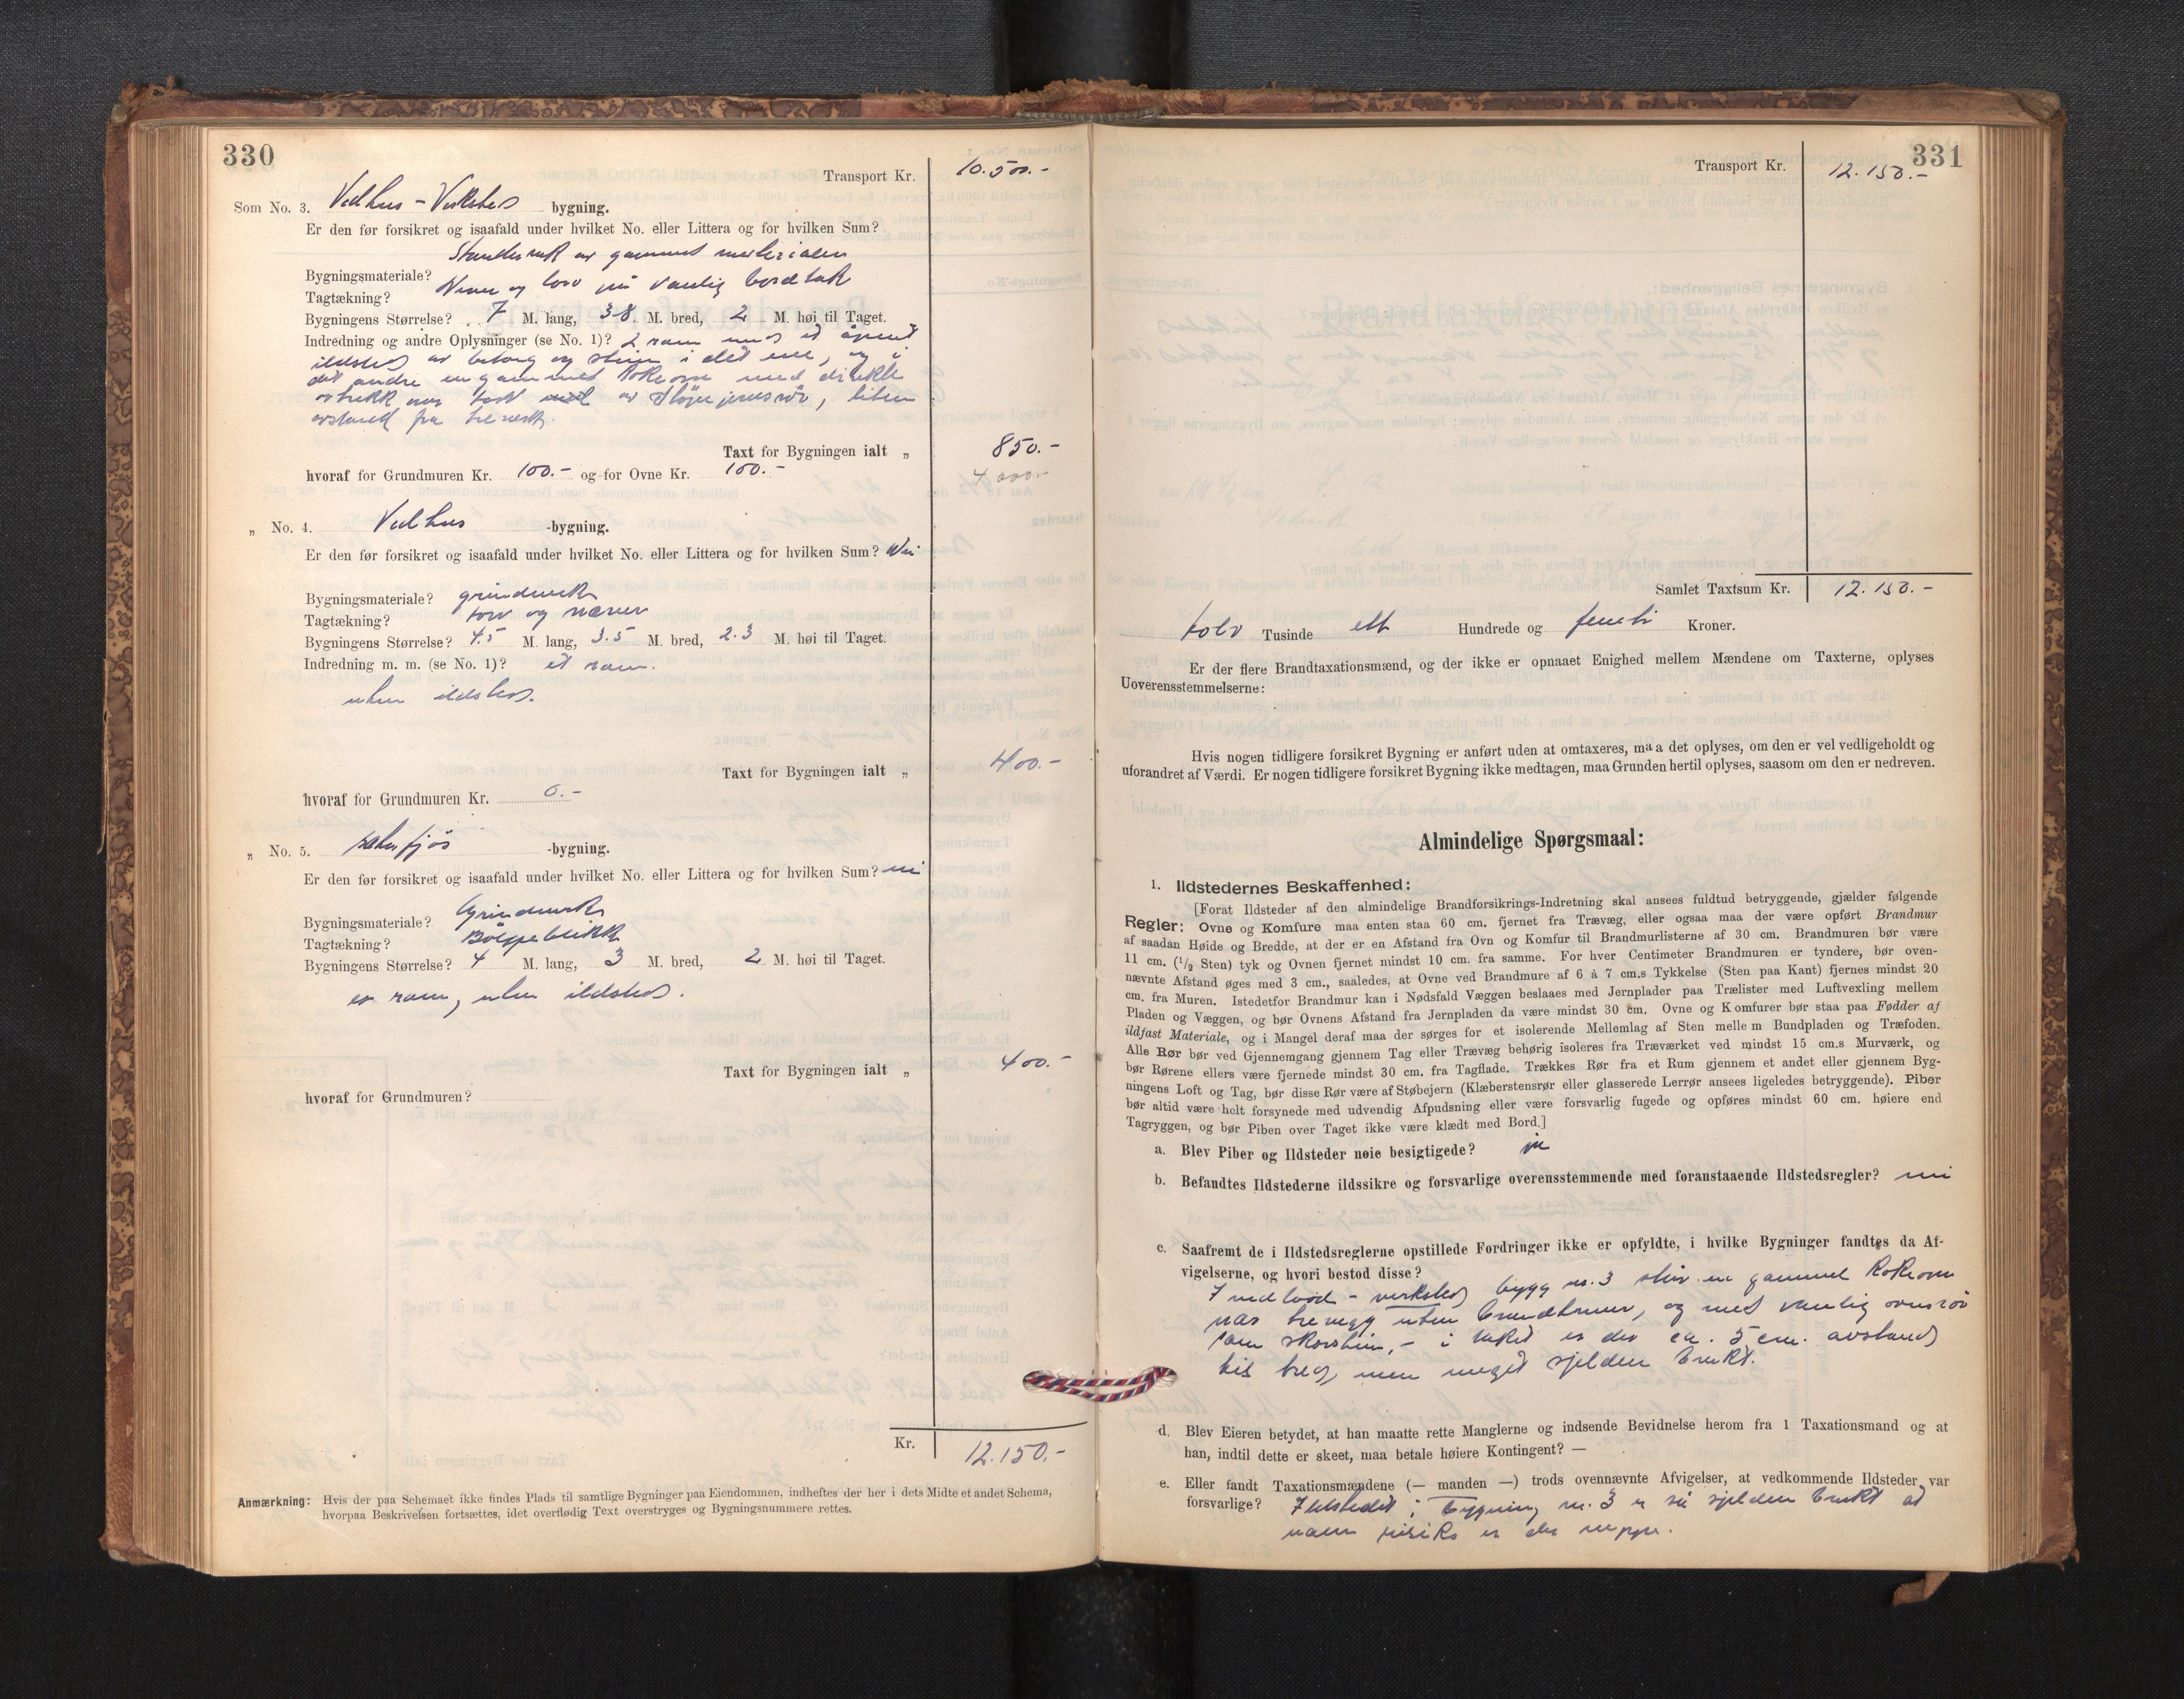 330
Transport Kr. 10.500.-
Som No. 3. Vedhus - Verksted bygning.
Er den før forsikret og isaafald under hvilket No. eller Littera og for hvilken Sum?
Bygningsmateriale? Standerverk av gammet materialer
Tagtækning? Never og torv på vanlig bordtak
Bygningens Størrelse? 7 M. lang, 3.8 M. bred, 2 M. høi til Taget.
Indredning og andre Oplysninger (se No. 1)? 2 rom med et åpent
ildsted av betong og stein i det ene, og i
det andre en gammel kokeovn med direkte
avtrekk over tak av støpejernsrør, liten
avstand fra treverk.
Taxt for Bygningen ialt „ 850.-
hvoraf for Grundmuren Kr. 100.- og for Ovne Kr. 100.-
4000.-
„ No. 4. Vedhus -bygning.
Er den før forsikret og isaafald under hvilket No. eller Littera og for hvilken Sum? Nei
Bygningsmateriale? grindverk
Tagtækning? torv og never
Bygningens Størrelse? 4.5 M. lang, 3.5 M. bred, 2.3 M. høi til Taget.
Indredning m. m. (se No. 1)? et rom.
uten ildsted.
Taxt for Bygningen ialt „ 400.-
hvoraf for Grundmuren Kr. 0.-
„ No. 5. sauefjös -bygning.
Er den før forsikret og isaafald under hvilket No. eller Littera og for hvilken Sum? nei
Bygningsmateriale? Grindverk
Tagtækning? Bölgeblikk
Bygningens Størrelse? 4 M. lang, 3 M. bred, 2 M. høi til Taget.
et rom, uten ildsted.
Taxt for Bygningen ialt „ 400.-
hvoraf for Grundmuren?
Kr. 12.150.-
Anmærkning: Hvis der paa Schemaet ikke findes Plads til samtlige Bygninger paa Eiendommen, indheftes der her i dets Midte et andet Schema,
hvorpaa Beskrivelsen fortsættes, idet overflødig Text overstryges og Bygningsnummere rettes.
331
Transport Kr. 12.150.-
Samlet Taxtsum Kr. 12.150.-
tolv Tusinde ett Hundrede og femti Kroner.
Er der flere Brandtaxationsmænd, og der ikke er opnaaet Enighed mellem Mændene om Taxterne, oplyses
Uoverensstemmelserne:
Hvis nogen tidligere forsikret Bygning er anført uden at omtaxeres, maa det oplyses, om den er vel vedligeholdt og
uforandret af Værdi. Er nogen tidligere forsikret Bygning ikke medtagen, maa Grunden hertil oplyses, saasom om den er nedreven.
Almindelige Spørgsmaal:
1. Ildstedernes Beskaffenhed:
[Forat Ildsteder af den almindelige Brandforsikrings-Indretning skal ansees fuldtud betryggende, gjælder følgende
Regler: Ovne og Komfure maa enten staa 60 cm. fjernet fra Trævæg, eller ogsaa maa der være opført Brandmur
af saadan Høide og Bredde, at der er en Afstand fra Ovn og Komfur til Brandmurlisterne af 30 cm. Brandmuren bør være
11 cm. (1/2 Sten) tyk og Ovnen fjernet mindst 10 cm. fra samme. For hver Centimeter Brandmuren er tyndere, bør oven-
nævnte Afstand øges med 3 cm., saaledes, at Ovne ved Brandmure af 6 à 7 cm.s Tykkelse (Sten paa Kant) fjernes mindst 20
cm. fra Muren. Istedetfor Brandmur kan i Nødsfald Væggen beslaaes med Jernplader paa Trælister med Luftvexling mellem
Pladen og Væggen, og bør Ovnens Afstand fra Jernpladen da være mindst 30 cm. Ovne og Komfurer bør staa paa Fødder af
ildfast Materiale, og i Mangel deraf maa der sørges for et isolerende Mellemlag af Sten mellem Bundpladen og Træfoden.
Alle Rør bør ved Gjennemgang gjennem Tag eller Trævæg behørig isoleres fra Træværket ved mindst 15 cm.s Murværk, og
bør Rørene ellers være fjernede mindst 30 cm. fra Tagflade. Trækkes Rør fra et Rum gjennem et andet eller gjennem Byg-
ningens Loft og Tag, bør disse Rør være af Støbejern (Klæberstensrør eller glasserede Lerrør ansees ligeledes betryggende). Piber
bør altid være helt forsynede med udvendig Afpudsning eller være forsvarlig fugede og opføres mindst 60 cm. høiere end
Tagryggen, og bør Piben over Taget ikke være klædt med Bord.]
a. Blev Piber og Ildsteder nøie besigtigede? ja
b. Befandtes Ildstederne ildssikre og forsvarlige overensstemmende med foranstaaende Ildstedsregler? nei
c. Saafremt de i Ildstedsreglerne opstillede Fordringer ikke er opfyldte, i hvilke Bygninger fandtes da Af-
vigelserne, og hvori bestod disse?
I vedbod - verksted, bygg nr. 3 står en gammel kokeovn
nær trevegg uten brandmur, og med vanlig ovnsrör
som skorstein, - i taket er der ca. 5 cm. avstand
til tre, men meget sjelden brukt.
d. Blev Eieren betydet, at han maatte rette Manglerne og indsende Bevidnelse herom fra 1 Taxationsmand og at
han, indtil dette er skeet, maa betale høiere Kontingent? —
e. Eller fandt Taxationsmændene (— manden —) trods ovennævnte Afvigelser, at vedkommende Ildsteder var
forsvarlige? Ildstedet i bygning nr. 3 er så sjelden brukt at
noen risiko er der neppe.